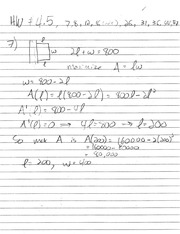 HW 4.5, 7, 8, 12, 26, 31, 36,
7) l w 2l + w = 800
maximize A = lw
w = 800 - 2l
A(l) = l(800 - 2l) = 800l - 2l²
A'(l) = 800 - 4l
A'(l) = 0 → 4l = 800 → l = 200
So max A is A(200) = 160000 - 2(200)²
= 160000 - 80000
= 80,000
l = 200, w = 400